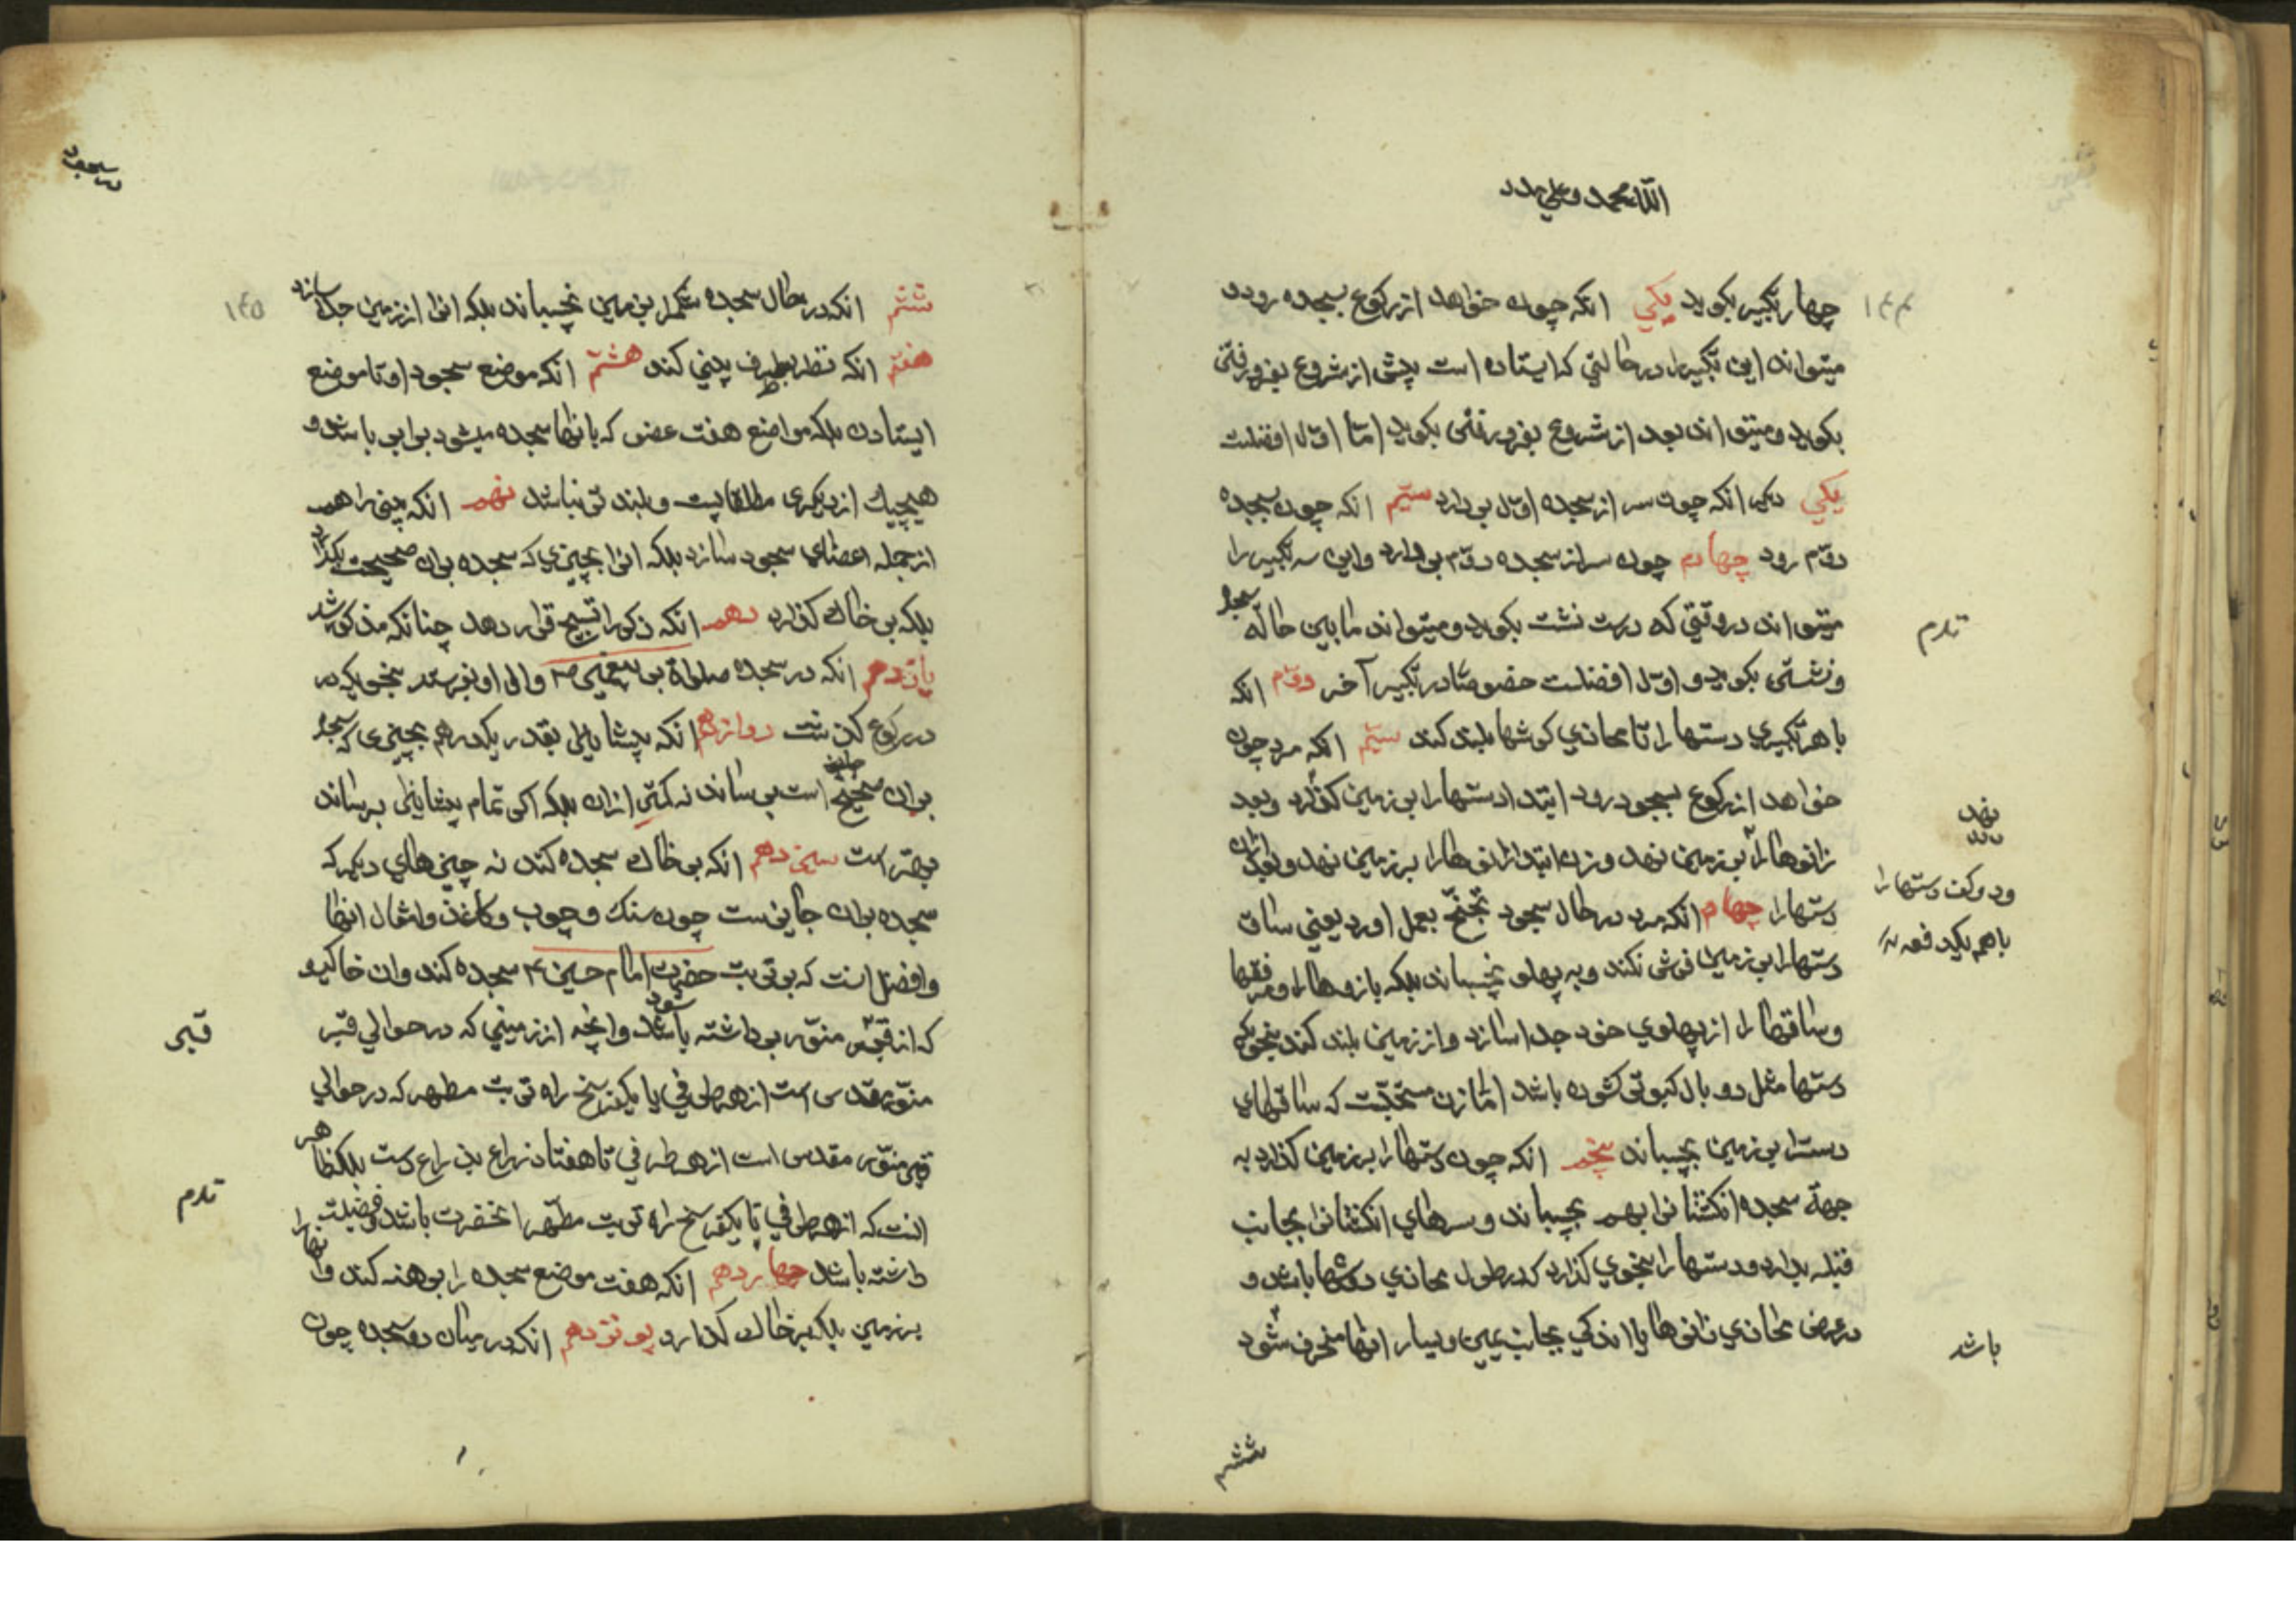 الله محمد و علی مدد
۱۴۴
چهار تکبیر بکوید یکی انکه چون خواهد از رکوع بسجده رود
میتواند این تکبیر را در حالتی که ایستاده است پیش از شروع بفرو رفتن
بکوید و میتواند بعد از شروع بفرو رفتن بکوید امّا اوّل افضلست
یکی دیکر انکه چون سر از سجده اوّل بر دارد سیّم انکه چون بسجده
دوّم رود چهارم چون سر از سجده دوّم بر دارد و این سه تکبیر را
میتواند در وقتی که درست نشست بکوید و میتواند مابین حالة سجود
و نشستن بکوید و اوّل افضلست خصوصًا در تکبیر آخر دوّم انکه
با هر تکبیری دستها را تا محاذی کوشها بلند کند سیّم انکه مرد چون
خواهد از رکوع بسجود رود ابتدا دستها را بر زمین کذارد و بعد
زانوها را بر زمین نهد و زن ابتدا زانوها را بر زمین نهد و بعد از ان
دستها را چهارم انکه مرد در حال سجود تجنّح بعمل اورد یعنی ساق
دستها را بر زمین فرش نکند و به پهلو نچسباند بلکه بازوها را و مرفقها
و ساقها را از پهلوی خود جدا سازد و از زمین بلند کند بنحوی که
دستها مثل دو بال کبوتر کشوده باشد امّا زن مستحبّست که ساقهای
دست را بر زمین بچسباند پنجم انکه چون دستها را بر زمین کذارد به
جهة سجده انکشتان را بهم بچسباند و سرهای انکشتان را بجانب
قبله بدارد و دستها را بنحوی کذارد که در طول محاذی دوشها باشد و
در عرض محاذی زانوها یا اندکی بجانب یمین و یسار انها منحرف شود
نهد
و دو کف دستها را
باهم بیکدفعه
باشد
ششم
سجود
۱۴۵
ششم انکه در حال سجده شکم را بزمین نچسباند بلکه انرا از زمین جدا سازد
هفتم انکه نظر بطرف بینی کند هشتم انکه موضع سجود او تا موضع
ایستادن بلکه مواضع هفت عضو که بانها سجده میشود برابر باشد و
هیچیک از دیکری مطلقا پست و بلند تر نباشد نهم انکه بینی را هم
از جمله اعضای سجود سازد بلکه انرا بچیزی که سجده بران صحیحست بکذارد
بلکه بر خاک کذارد دهم انکه ذکر را تسبیح قرار دهد چنانکه مذکور شد
یازدهم انکه در سجده صلواة بر پیغمبر ص و ال او بفرستد بنحوی که در
در رکوع کذشت دوازدهم انکه پیشانی بقدر یکدرهم بچیزی که سجود
بران صحیح است برساند نه کمتر ازان بلکه اکر تمام پیشانی برساند
بهتر است سیزدهم انکه بر خاک سجده کند نه چیزهای دیکر که
سجده بران جایزست چون سنک و چوب و کاغذ و امثال انها
و افضل انست که بر تربت حضرت امام حسین ع سجده کند و ان خاکیو
که از قبر منوّر بر داشته باشد و انچه از زمینی که در حوالی قبر
منوّر مقدس است از هر طرفی یا یکفرسخ راه تربت مطهر که در حوالی
قبر منوّر مقدس است از هر طرفی تا هفتاد ذراع بذراع دست بلکه ظاهر
انست که از هر طرفی تا یکفرسخ راه تربت مطهّر انحضرت باشد و فضیلت
داشته باشد چهاردهم انکه هفت موضع سجده را برهنه کند و انها را
بر زمین بلکه بر خاک کذارد پونزدهم انکه در میان دو سجده چون
قبر